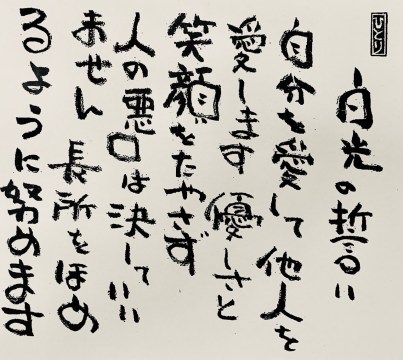 ひとり
白光の誓い
自分を愛して他人を
愛します 優しさと
笑顔をたやさず
人の悪口は決していい
ません 長所をほめ
るように努めます